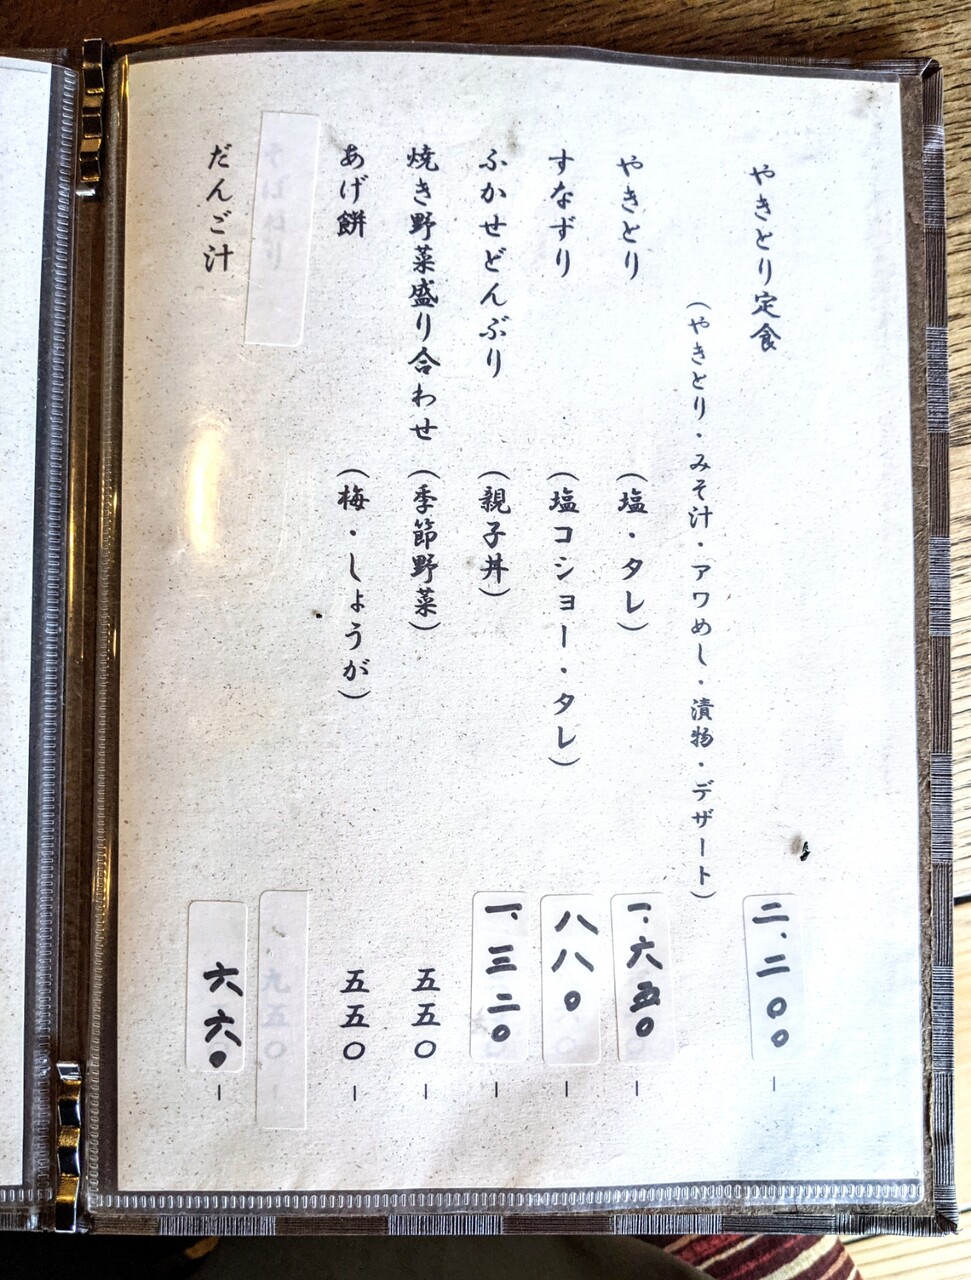 やきとり定食 二、二〇〇ー
（やきとり・みそ汁・アワめし・漬物・デザート）
やきとり （塩・タレ） 一、六五〇ー
すなずり （塩コショー・タレ） 八八〇ー
ふかせどんぶり （親子丼） 一、三二〇ー
焼き野菜盛り合わせ （季節野菜） 五五〇ー
あげ餅 （梅・しょうが） 五五〇ー
だんご汁 六六〇ー